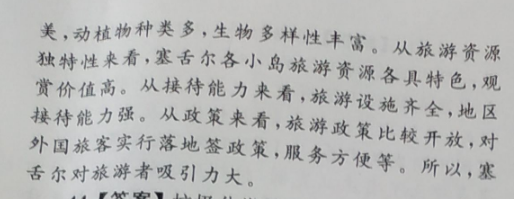 美，动植物种类多，生物多样性丰富。从旅游资源
独特性来看，塞舌尔各小岛旅游资源各具特色，观
赏价值高。从接待能力来看，旅游设施齐全，地区
接待能力强。从政策来看，旅游政策比较开放，对
外国旅客实行落地签政策，服务方便等。所以，塞
舌尔对旅游者吸引力大。
【答案】